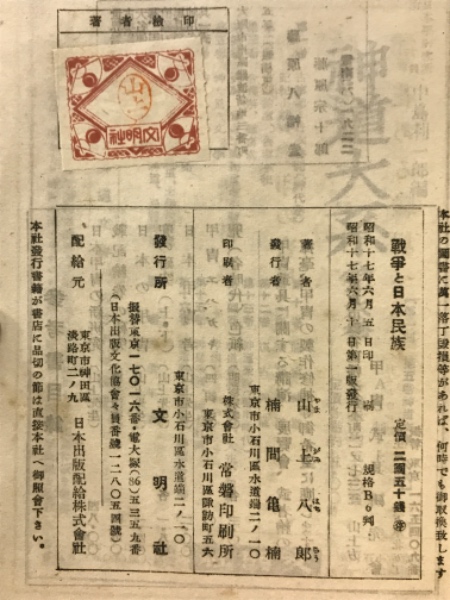 著者檢印
山上
文明社
本社の圖書に萬一落丁破損等があれば、何時でも御取換致します
戰爭と日本民族
定價 二圓五十錢
昭和十七年六月五日印刷
規格B6判
昭和十七年六月十日第一版發行
著者 山上八郎
發行者 楠間亀楠
東京市小石川區水道端二ノ一〇
印刷者 株式會社 常磐印刷所
東京市小石川區諏訪町五六
發行所 文明社
東京市小石川區水道端二ノ一〇
振替東京一七〇一六番・電大塚(86)五三五九番
(日本出版文化協會々員番號一二八〇五四號)
配給元 東京市神田區淡路町二ノ九 日本出版配給株式會社
本社發行書籍が書店に品切の節は直接本社へ御照會下さい。